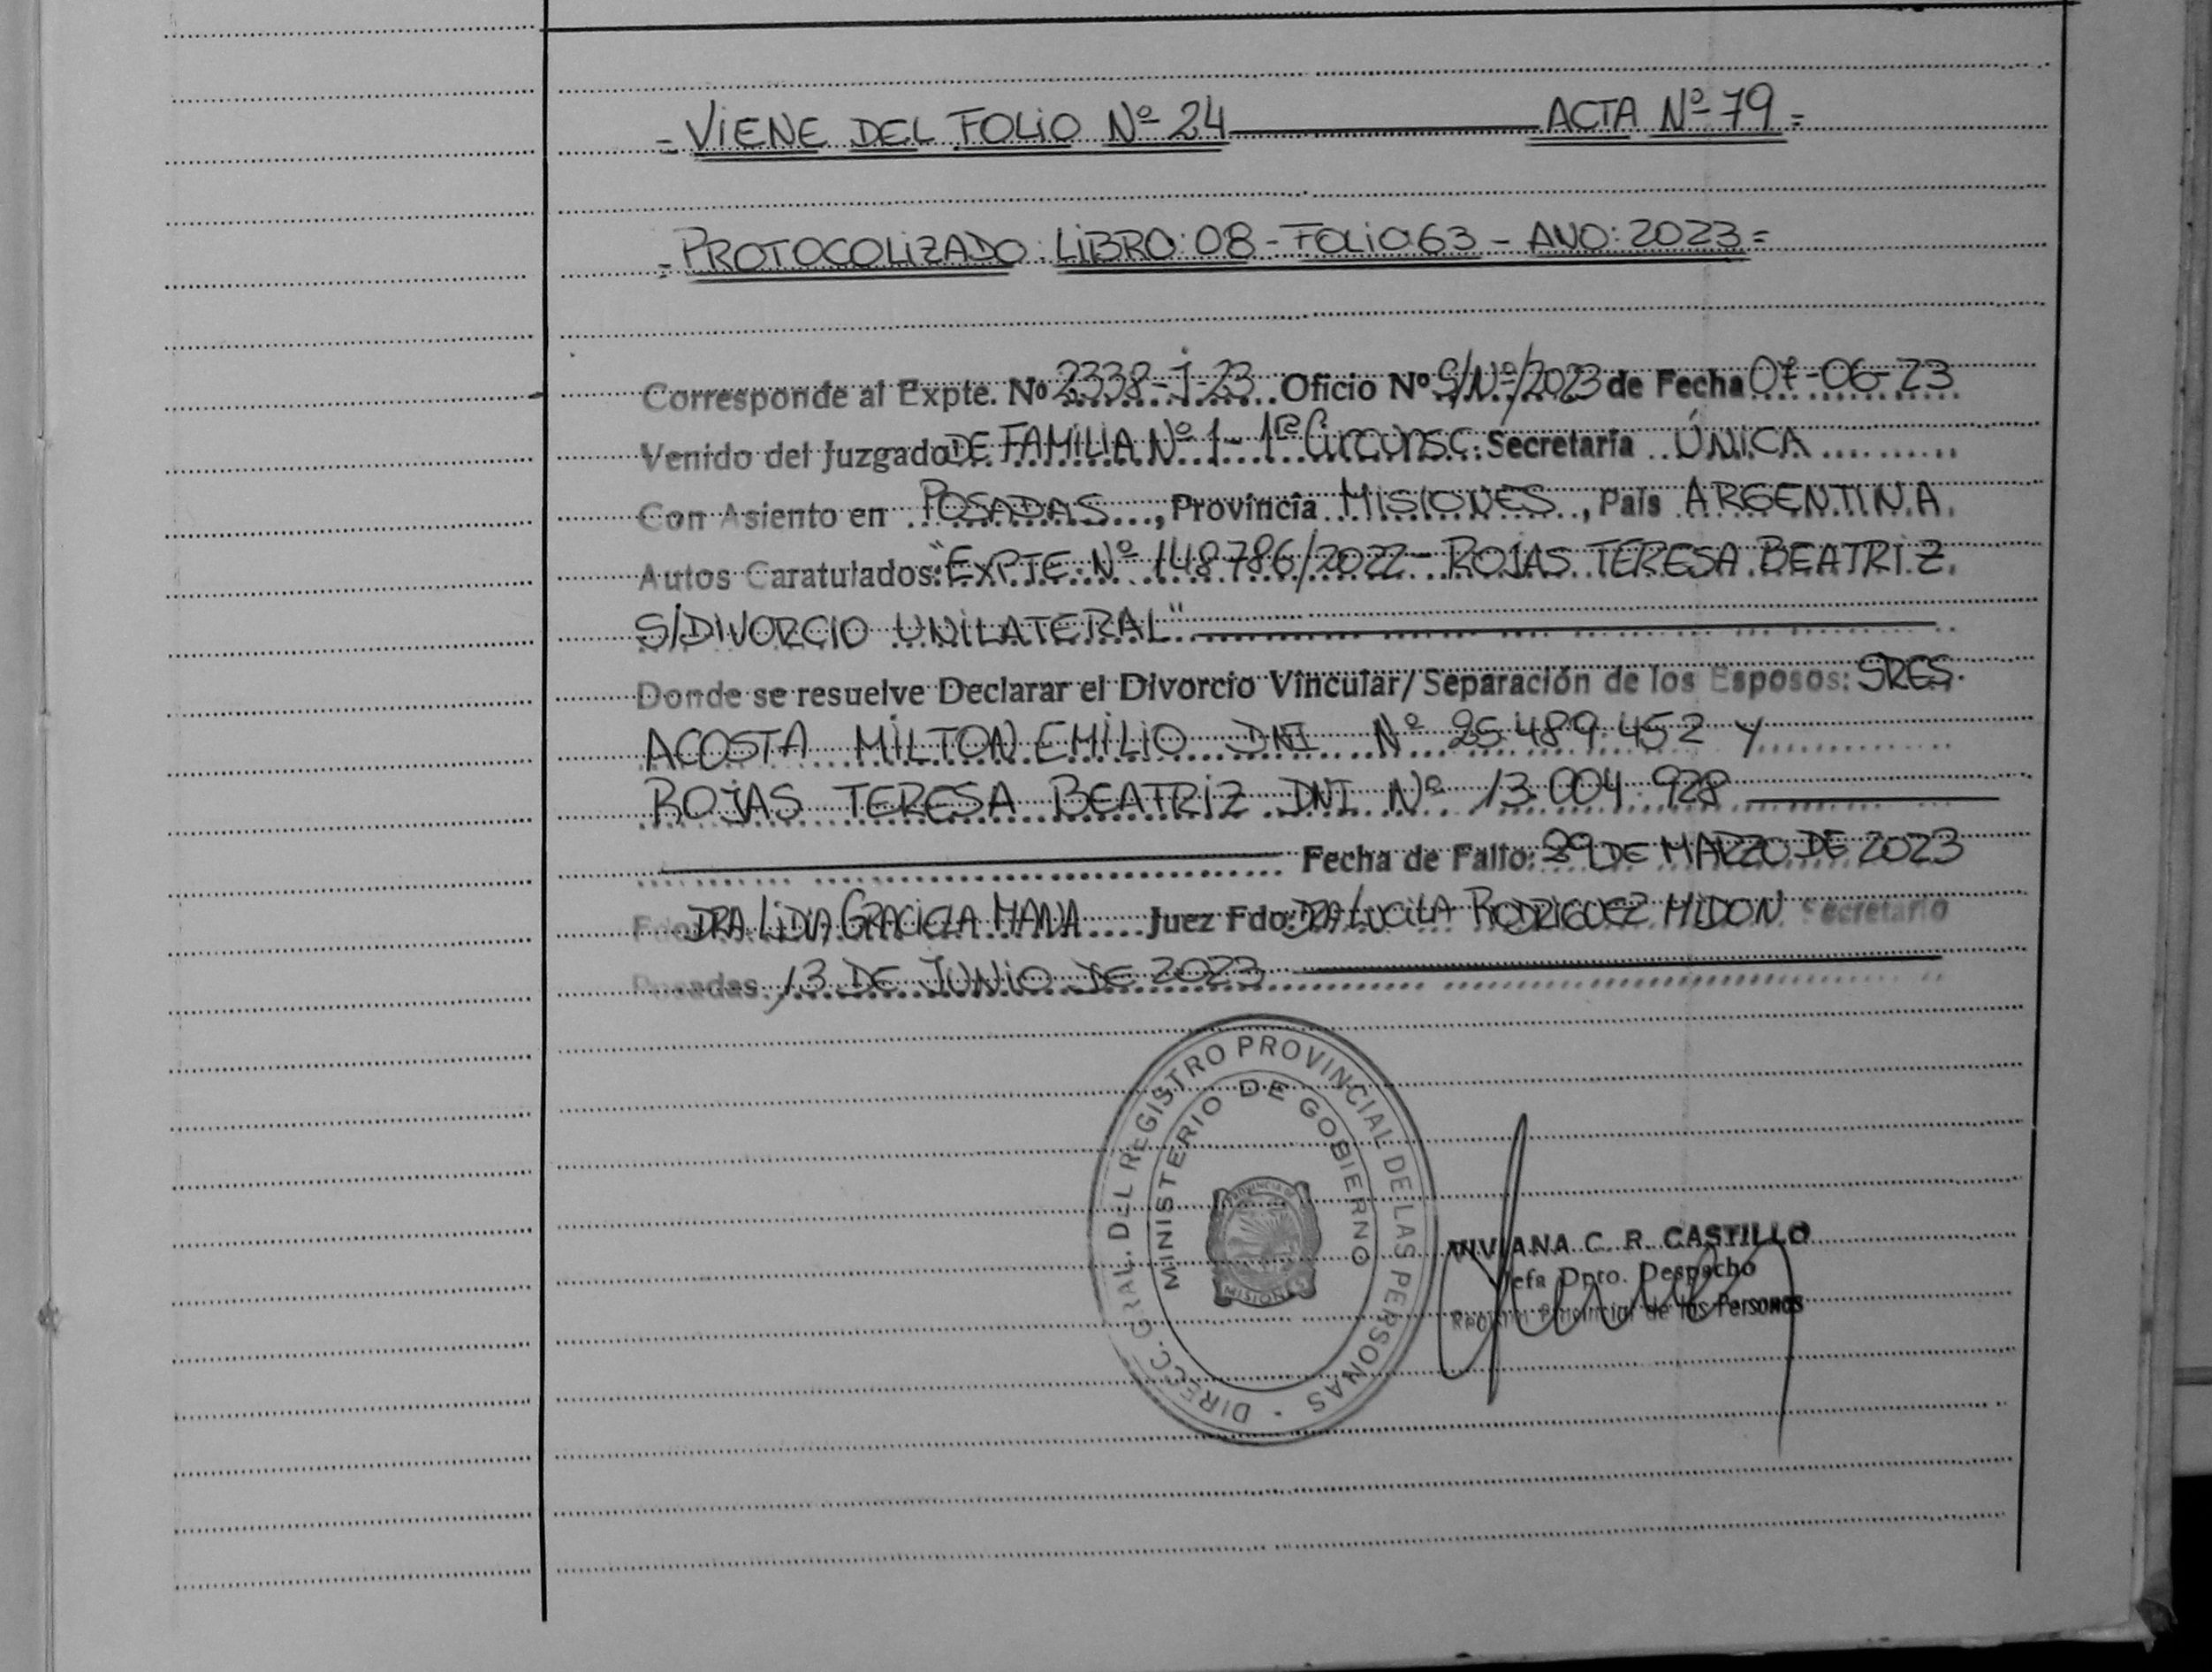 = VIENE DEL FOLIO Nº 24 ACTA Nº 79 =
= PROTOCOLIZADO: LIBRO: 08 - FOLIO 63 - ANO: 2023 =
Corresponde al Expte. Nº 2338-J-23 Oficio Nº S/Nº/2023 de Fecha 07-06-23
Venido del Juzgado DE FAMILIA Nº 1 - 1ª Circunsc. Secretaría ÚNICA
Con Asiento en POSADAS, Provincia MISIONES, País ARGENTINA.
Autos Caratulados: "EXPTE. Nº 148786/2022 - ROJAS TERESA BEATRIZ
S/DIVORCIO UNILATERAL"
Donde se resuelve Declarar el Divorcio Vincular/Separación de los Esposos: SRES.
ACOSTA MILTON EMILIO DNI Nº 25.489.452 Y
ROJAS TERESA BEATRIZ DNI Nº 13.004.928
Fecha de Fallo: 29 DE MARZO DE 2023
Fdo: DRA LIDIA GRACIELA MANA Juez Fdo: DRA LUCILA RODRIGUEZ MIDON Secretario
Posadas, 13 DE JUNIO DE 2023
DIREC. GRAL. DEL REGISTRO PROVINCIAL DE LAS PERSONAS
MINISTERIO DE GOBIERNO
PROVINCIA DE
MISIONES
VIVIANA C. R. CASTILLO
Jefa Dpto. Despacho
Registro Provincial de las Personas